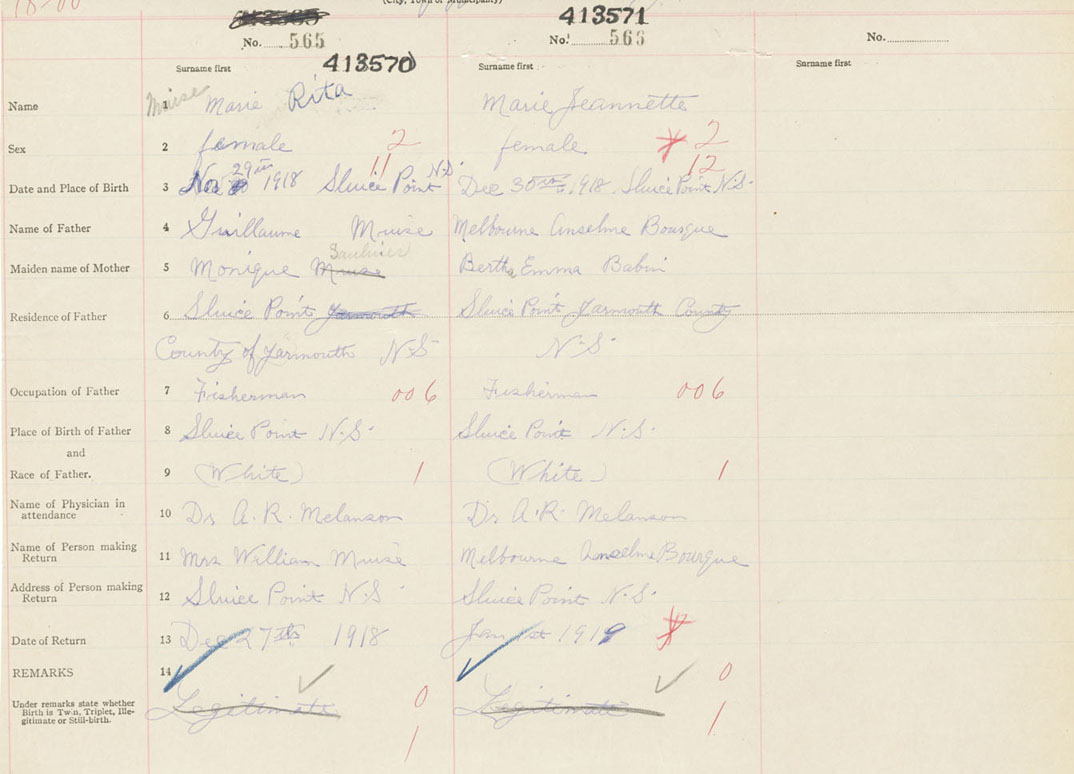 18-00
(City, Town or Municipality)
413571
No. 565 No. 566 No.
413570
Surname first Surname first Surname first
Name 1 Muise Marie Rita Marie Jeannette
Sex 2 female 2 female 2
Date and Place of Birth 3 Nov 29th 1918 Sluice Point N.S. 11 Dec 30th 1918. Sluice Point N.S. 12
Name of Father 4 Guillaume Muise Melbourne Anselme Bourque
Saulnier
Maiden name of Mother 5 Monique Muise Bertha Emma Babin
Residence of Father 6 Sluice Point Yarmouth Sluice Point Yarmouth County
County of Yarmouth N-S N-S
Occupation of Father 7 Fisherman 006 Fisherman 006
Place of Birth of Father 8 Sluice Point N.S. Sluice Point N.S.
and
Race of Father. 9 (White) 1 (White) 1
Name of Physician in
attendance 10 Dr A.R. Melanson Dr A.R. Melanson
Name of Person making
Return 11 Mrs William Muise Melbourne Anselme Bourque
Address of Person making
Return 12 Sluice Point N.S. Sluice Point N.S.
Date of Return 13 Dec 27th 1918 Jan 1st 1919
REMARKS 14
Under remarks state whether
Birth is Twin, Triplet, Ille-
gitimate or Still-birth.
Legitimate 0 Legitimate 0
1 1